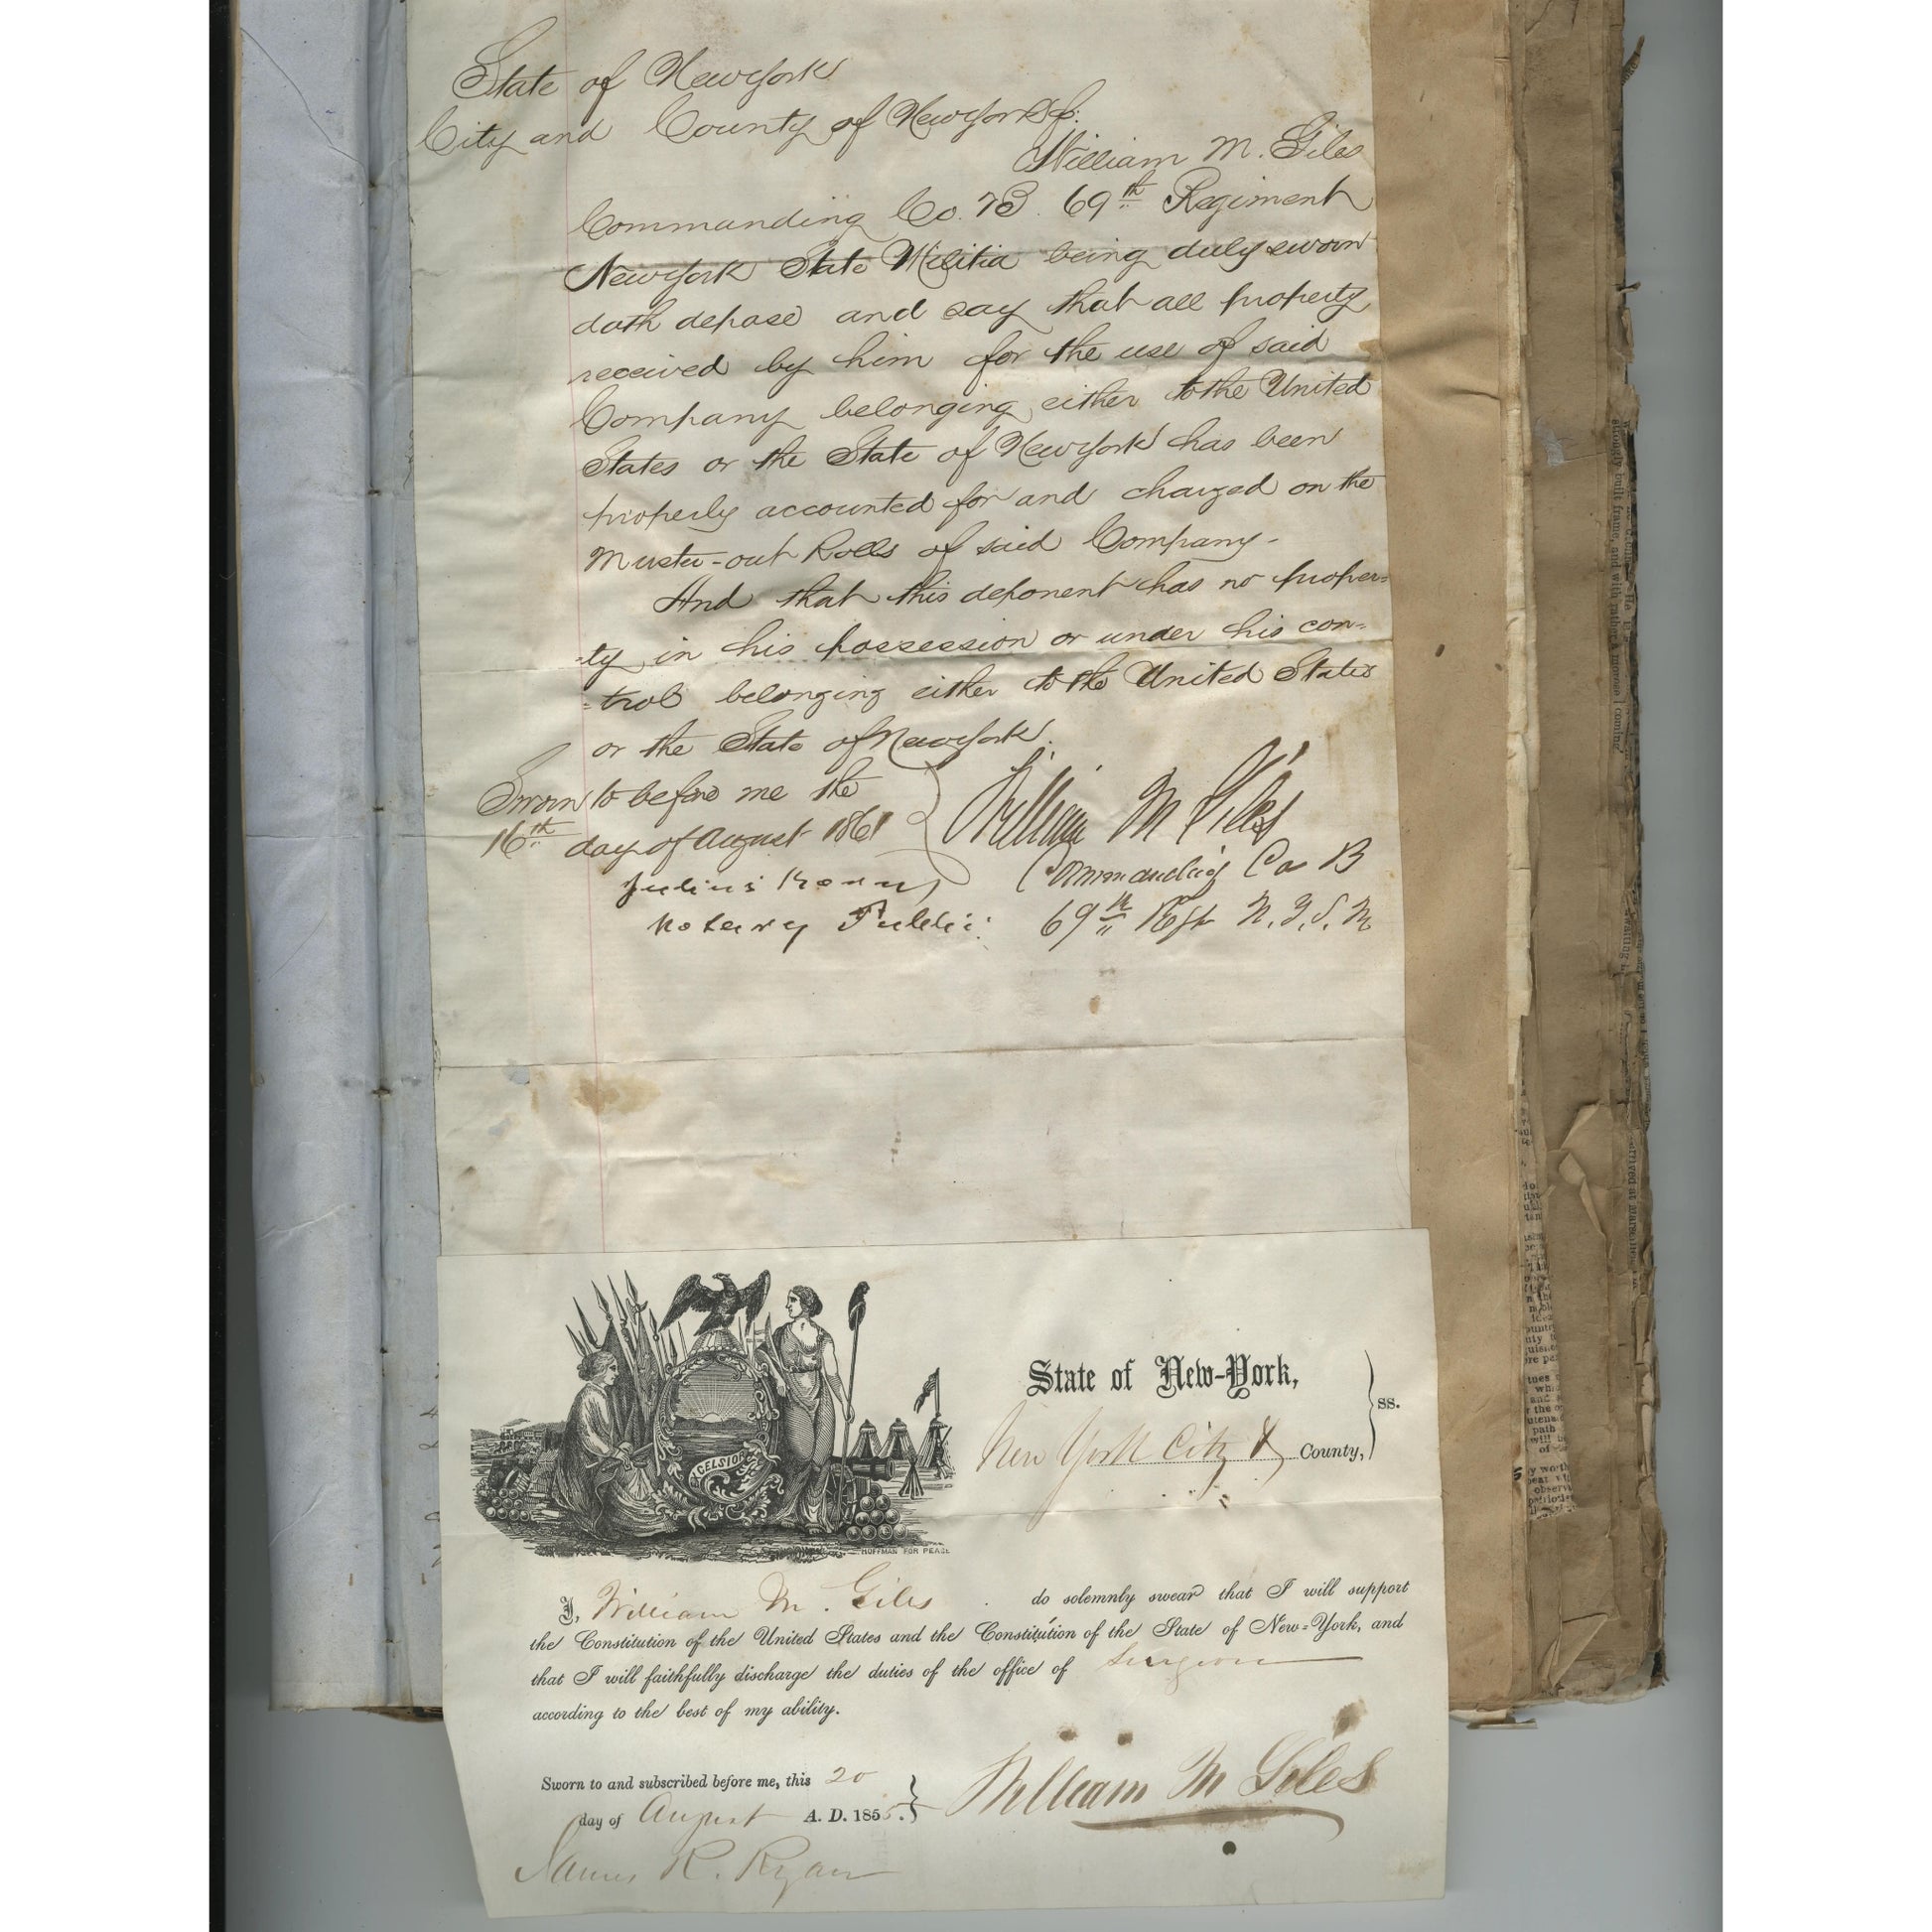 State of New York
City and County of New York ss:
William M. Giles
Commanding Co. B. 69th Regiment
New York State Militia being duly sworn
doth depose and say that all property
received by him for the use of said
Company belonging either to the United
States or the State of New York has been
properly accounted for and charged on the
Muster-out Rolls of said Company-
And that this deponent has no proper=
-ty in his possession or under his con=
=trol belonging either to the United States
or the State of New York.
Sworn to before me the
16th day of August 1861
William M Giles
Commanding Co B
69th Regt N.Y.S.M
Julius
Notary Public
State of New-York,
New York City & County, ss.
EXCELSIOR
HOFFMAN FOR PEASE
I, William M. Giles do solemnly swear that I will support
the Constitution of the United States and the Constitution of the State of New-York, and
that I will faithfully discharge the duties of the office of Surgeon
according to the best of my ability.
Sworn to and subscribed before me, this 20
day of August A. D. 1855.
William M Giles
James R. Ryan